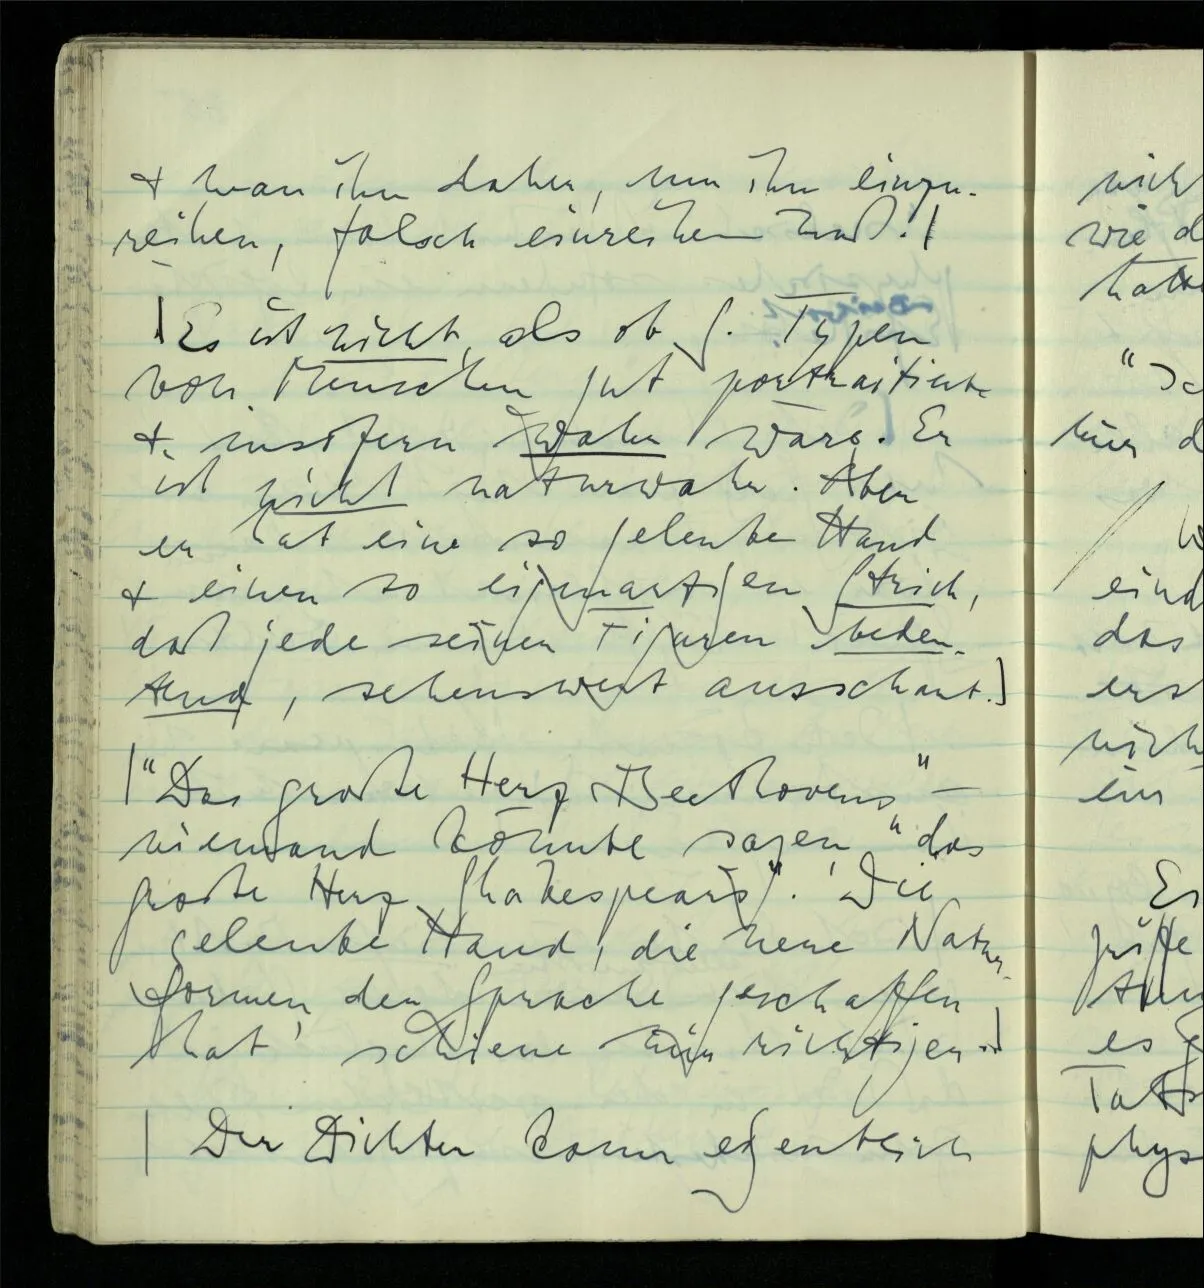 & man ihn daher, um ihn einzu-
reihen, falsch einreihen muß.|
|Es ist nicht, als ob S. Typen
von Menschen gut portraitierte
& insofern wahr wäre. Er
ist nicht naturwahr. Aber
er hat eine so gelenke Hand
& einen so eigenartigen Strich,
daß jede seiner Figuren bedeu-
tend, sehenswert ausschaut.]
|"Das große Herz Beethovens" –
niemand könnte sagen "das
große Herz Shakespeares". 'Die
gelenke Hand, die neue Natur-
formen der Sprache geschaffen
hat' schiene mir richtiger.]
| Der Dichter kann eigentlich
nich
wie d
hatte
"Sc
nur d
eind
das
erst
nich
ein
Es
es g
Tats
phys